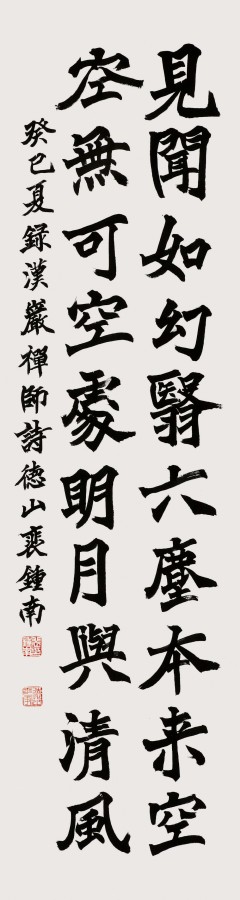 見聞如幻翳六塵本来空
空無可空處明月與清風
癸巳夏録漢巖禪師詩德山裴鍾南